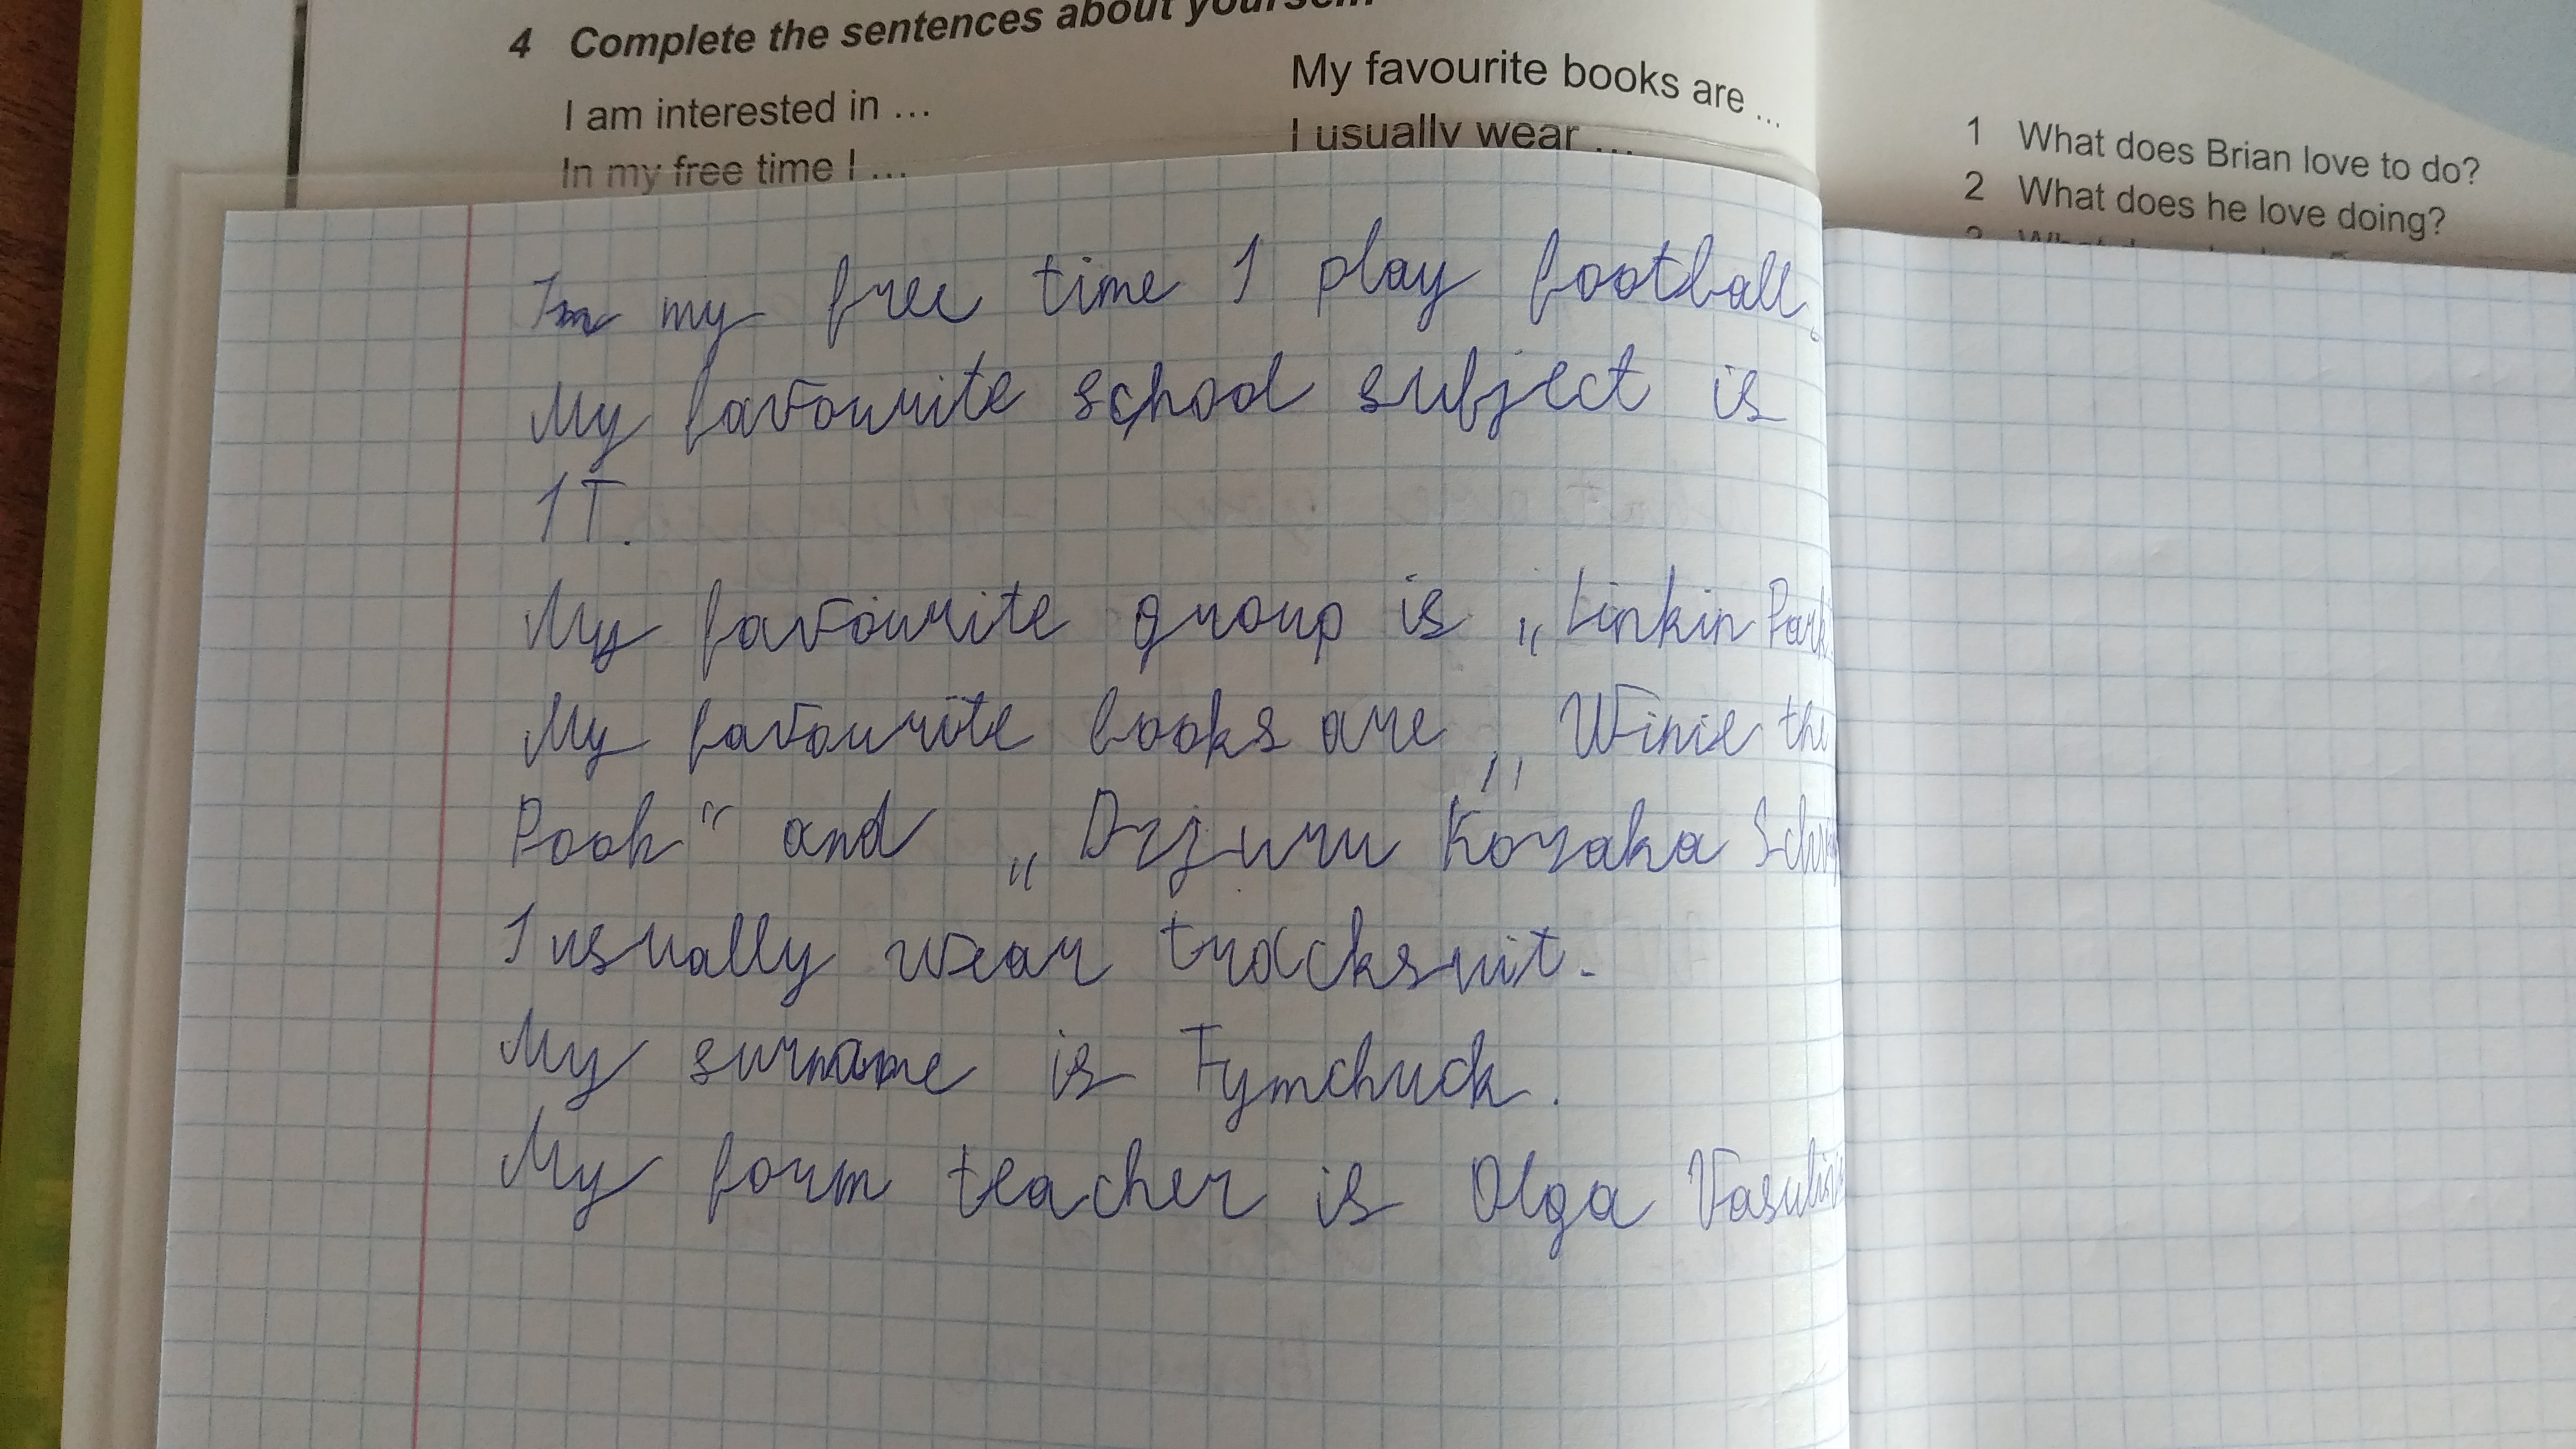 4 Complete the sentences about yourself
I am interested in ...
In my free time I ...
My favourite books are ...
I usually wear ...
1 What does Brian love to do?
2 What does he love doing?
In my free time I play football.
My favourite school subject is
IT.
My favourite group is „Linkin Park
My favourite books are „Winie the
Pooh" and „Dzjuru Kozaka
I usually wear tracksuit.
My surname is Tymchuck.
My form teacher is Olga